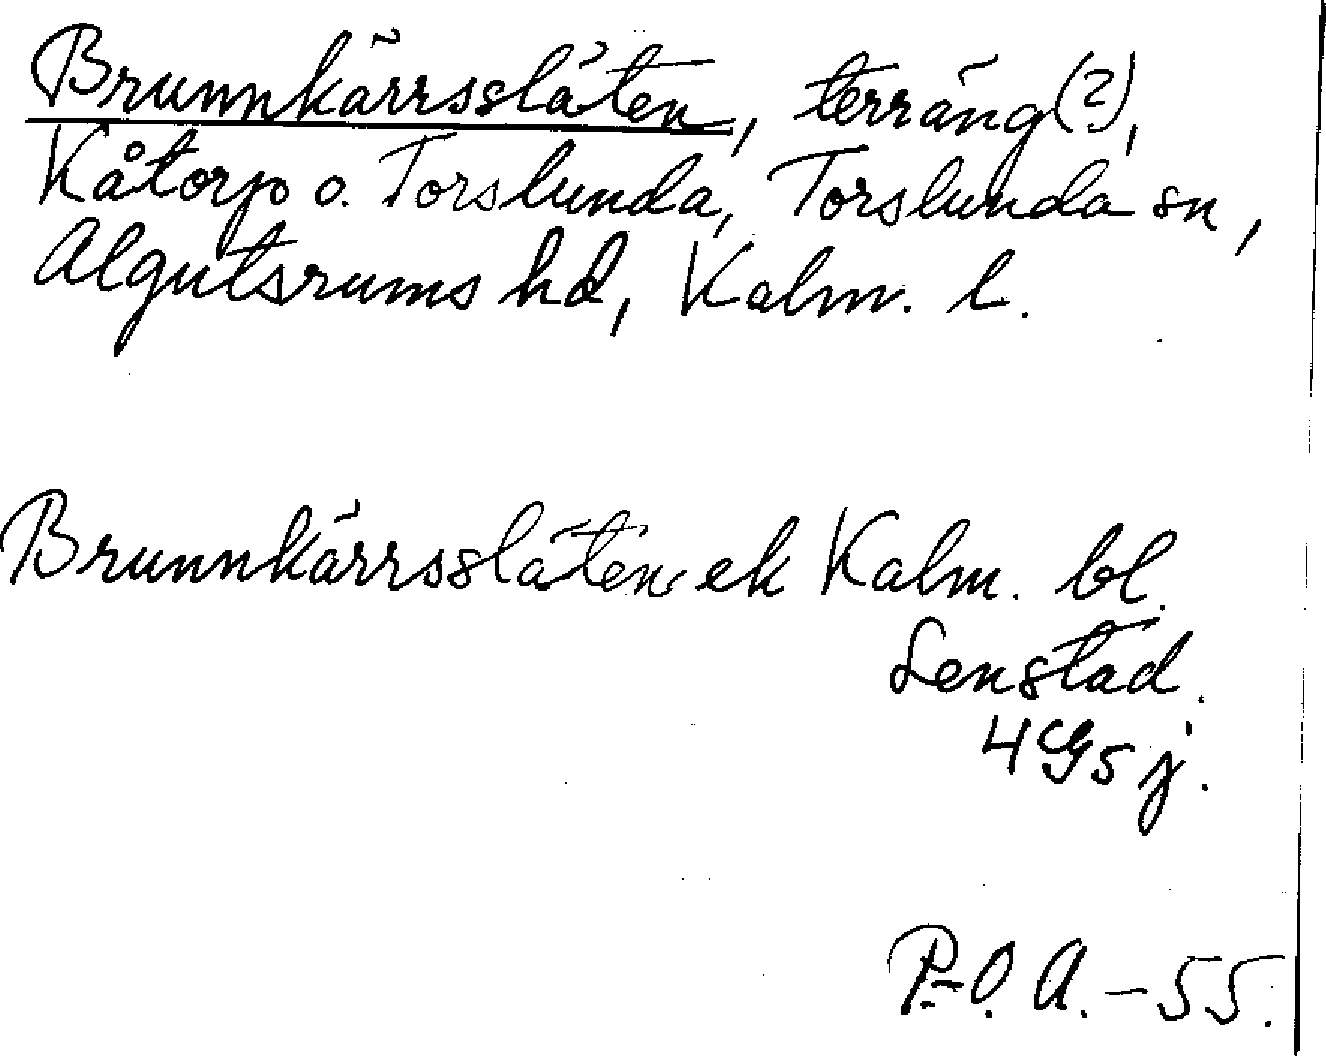 Brunnkärrssläten, terräng (?),
Kåtorp o. Torslunda, Torslunda sn,
Algutsrums hd, Kalm. l.
Brunnkärrssläten ek Kalm. bl.
Lenstad.
4G5j.
P.-O. A. – 55.